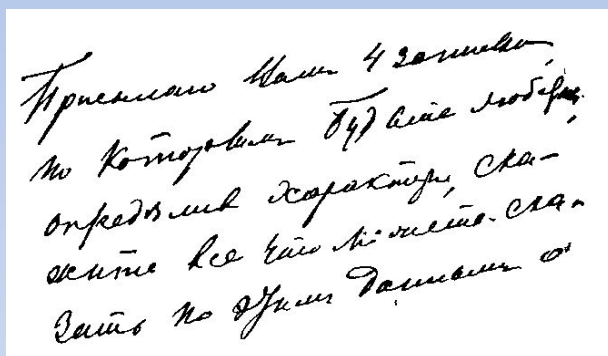 Присылаю Вамъ 4 записки,
по которымъ Будьте любезны,
опредѣливъ характеръ, ска-
жите все что можете ска-
зать по этимъ даннымъ о